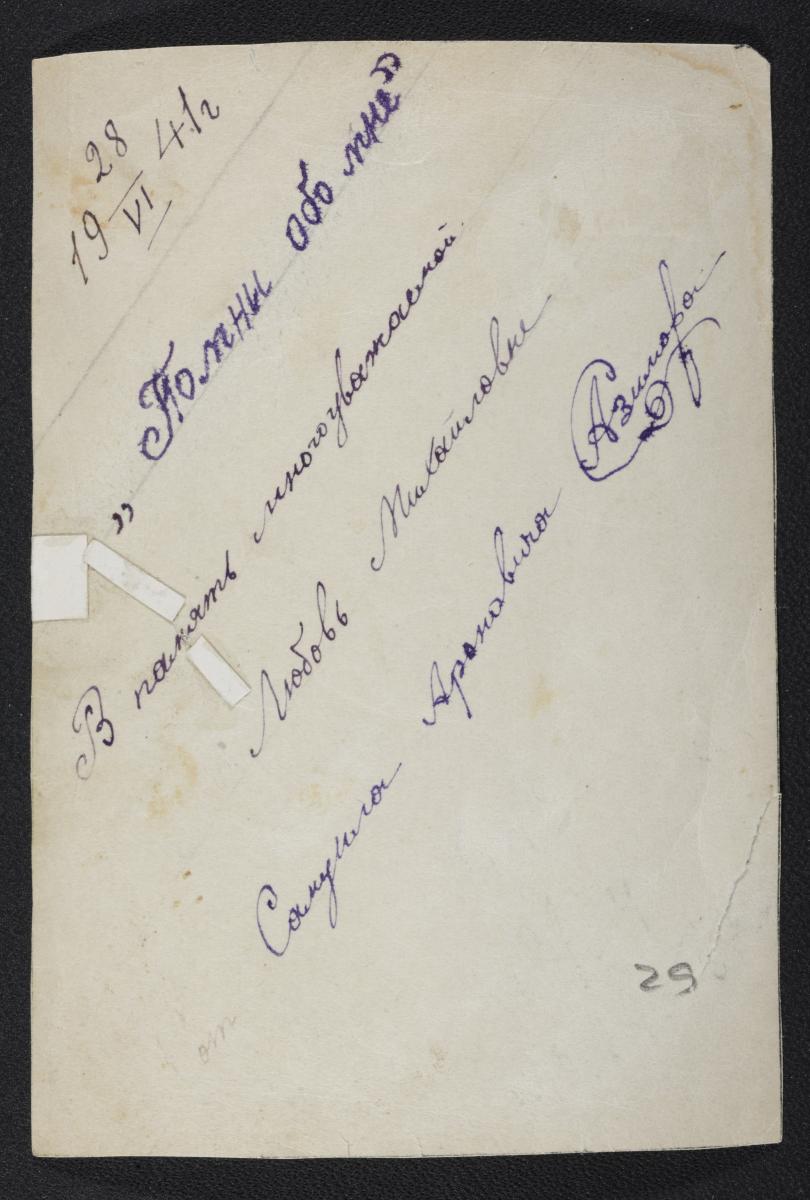 19 28/VI 41г
„Помни обо мне"
В память многоуважаемой
Любовь Михайловне
от
Самуила Ароновича Азимова
29